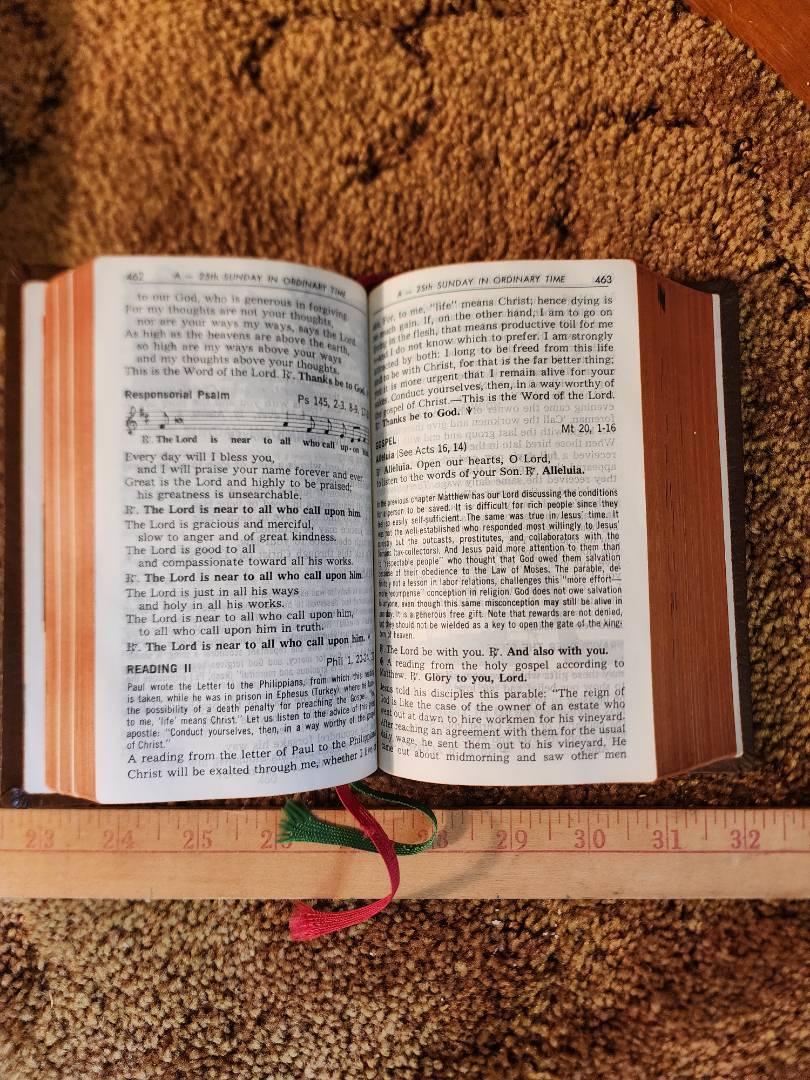 462 A — 25th SUNDAY IN ORDINARY TIME
to our God, who is generous in forgiving.
For my thoughts are not your thoughts,
nor are your ways my ways, says the Lord.
As high as the heavens are above the earth,
so high are my ways above your ways
and my thoughts above your thoughts.
This is the Word of the Lord. ℟. Thanks be to God.
Responsorial Psalm Ps 145, 2-3, 8-9,
℟. The Lord is near to all who call up-on
Every day will I bless you,
and I will praise your name forever and ever.
Great is the Lord and highly to be praised;
his greatness is unsearchable.
℟. The Lord is near to all who call upon him.
The Lord is gracious and merciful,
slow to anger and of great kindness.
The Lord is good to all
and compassionate toward all his works.
℟. The Lord is near to all who call upon him.
The Lord is just in all his ways
and holy in all his works.
The Lord is near to all who call upon him,
to all who call upon him in truth.
℟. The Lord is near to all who call upon him.
READING II Phil 1, 20-24,
Paul wrote the Letter to the Philippians, from which this
is taken, while he was in prison in Ephesus (Turkey) where he
the possibility of a death penalty for preaching the Gospel.
to me, 'life' means Christ." Let us listen to the advice of this
apostle: "Conduct yourselves, then, in a way worthy of the
of Christ."
A reading from the letter of Paul to the
Christ will be exalted through me, whether I
A — 25th SUNDAY IN ORDINARY TIME 463
For, to me, "life" means Christ; hence dying is
gain. If, on the other hand, I am to go on
in the flesh, that means productive toil for me
I do not know which to prefer. I am strongly
by both: I long to be freed from this life
to be with Christ, for that is the far better thing;
it is more urgent that I remain alive for your
Conduct yourselves, then, in a way worthy of
gospel of Christ.—This is the Word of the Lord.
Thanks be to God.
GOSPEL Mt 20, 1-16
Alleluia (See Acts 16, 14)
Alleluia. Open our hearts, O Lord,
to listen to the words of your Son. ℟. Alleluia.
In the previous chapter Matthew has our Lord discussing the conditions
for a person to be saved. It is difficult for rich people since they
so easily self-sufficient. The same was true in Jesus' time. It
was not the well-established who responded most willingly to Jesus'
but the outcasts, prostitutes, and collaborators with the
(tax-collectors). And Jesus paid more attention to them than
"respectable people" who thought that God owed them salvation
of their obedience to the Law of Moses. The parable, de-
not a lesson in labor relations, challenges this "more effort—
more recompense" conception in religion. God does not owe salvation
anyone, even though this same misconception may still be alive in
It is a generous free gift. Note that rewards are not denied,
they should not be wielded as a key to open the gate of the king-
of heaven.
The Lord be with you. ℟. And also with you.
A reading from the holy gospel according to
Matthew. ℟. Glory to you, Lord.
Jesus told his disciples this parable: "The reign of
God is like the case of the owner of an estate who
went out at dawn to hire workmen for his vineyard.
After reaching an agreement with them for the usual
daily wage, he sent them out to his vineyard. He
came out about midmorning and saw other men
23 24 25 26 28 29 30 31 32